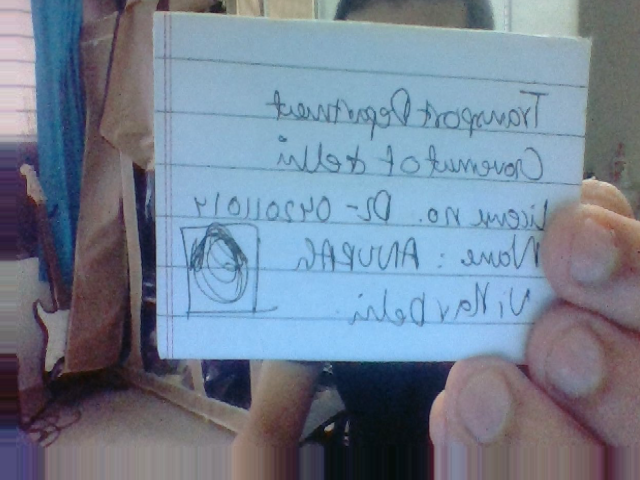 Transport Department
Goverment of delhi
License no. DL-042011014
Name : ANURAG
Delhi.